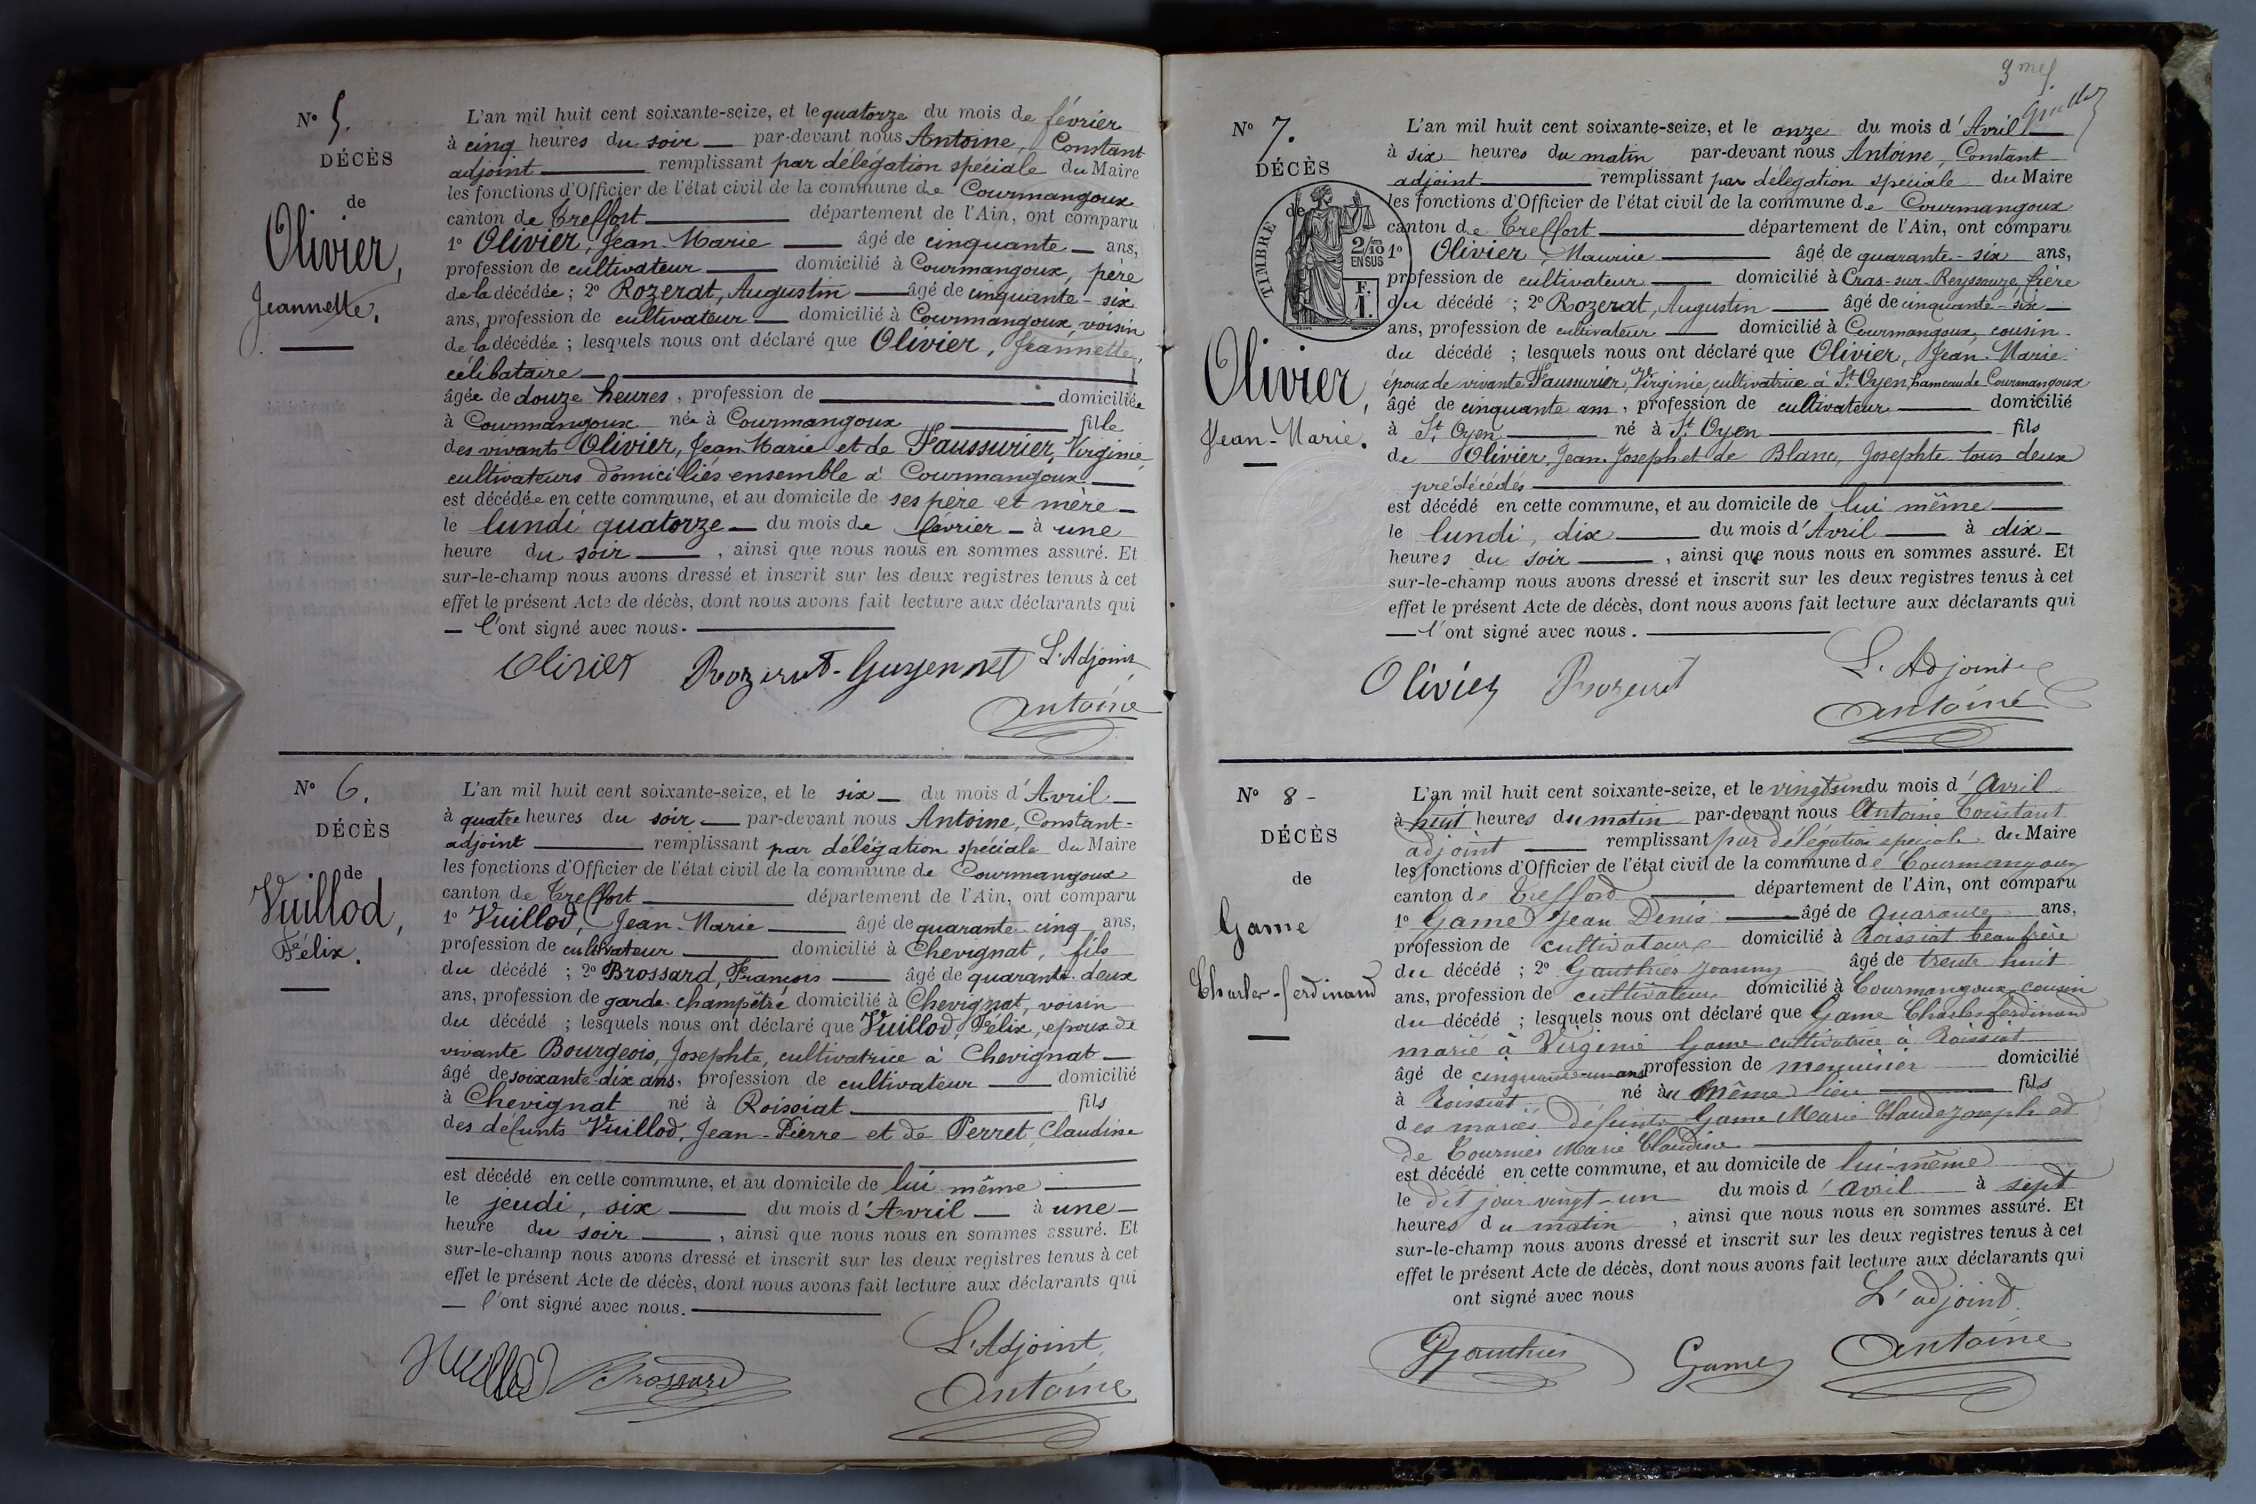 N° 5.
DÉCÈS
de
Olivier,
Jeannette.
L'an mil huit cent soixante-seize, et le quatorze du mois de février
à cinq heures du soir par-devant nous Antoine, Constant
adjoint remplissant par délégation spéciale du Maire
les fonctions d'Officier de l'état civil de la commune de Courmangoux
canton de Treffort département de l'Ain, ont comparu
1° Olivier, Jean-Marie âgé de cinquante ans,
profession de cultivateur domicilié à Courmangoux, père
de la décédée ; 2° Rozerat, Augustin âgé de cinquante-six
ans, profession de cultivateur domicilié à Courmangoux, voisin
de la décédée ; lesquels nous ont déclaré que Olivier, Jeannette,
célibataire
âgée de douze heures, profession de domiciliée
à Courmangoux née à Courmangoux fille
des vivants Olivier, Jean-Marie et de Faussurier, Virginie
cultivateurs domiciliés ensemble à Courmangoux
est décédée en cette commune, et au domicile de ses père et mère
le lundi quatorze du mois de février à une
heure du soir, ainsi que nous nous en sommes assuré. Et
sur-le-champ nous avons dressé et inscrit sur les deux registres tenus à cet
effet le présent Acte de décès, dont nous avons fait lecture aux déclarants qui
l'ont signé avec nous.
Olivier Rozerat-Guyennet L'Adjoint
Antoine
N° 6.
DÉCÈS
de
Vuillod,
Félix.
L'an mil huit cent soixante-seize, et le six du mois d'Avril
à quatre heures du soir par-devant nous Antoine, Constant
adjoint remplissant par délégation spéciale du Maire
les fonctions d'Officier de l'état civil de la commune de Courmangoux
canton de Treffort département de l'Ain, ont comparu
1° Vuillod, Jean-Marie âgé de quarante-cinq ans,
profession de cultivateur domicilié à Chevignat, fils
du décédé ; 2° Brossard, François âgé de quarante-deux
ans, profession de garde-champêtre domicilié à Chevignat, voisin
du décédé ; lesquels nous ont déclaré que Vuillod, Félix, époux de
vivante Bourgeois, Josephte, cultivatrice à Chevignat
âgé de soixante-dix ans, profession de cultivateur domicilié
à Chevignat né à Roissiat fils
des défunts Vuillod, Jean-Pierre et de Perret, Claudine
est décédé en cette commune, et au domicile de lui même
le jeudi, six du mois d'Avril à une
heure du soir, ainsi que nous nous en sommes assuré. Et
sur-le-champ nous avons dressé et inscrit sur les deux registres tenus à cet
effet le présent Acte de décès, dont nous avons fait lecture aux déclarants qui
l'ont signé avec nous.
Vuillod Brossard L'Adjoint,
Antoine
N° 7.
DÉCÈS
de
TIMBRE
2/10 EN SUS
F. 1.
Olivier,
Jean-Marie.
L'an mil huit cent soixante-seize, et le onze du mois d'Avril
à six heures du matin par-devant nous Antoine, Constant
adjoint remplissant par délégation spéciale du Maire
les fonctions d'Officier de l'état civil de la commune de Courmangoux
canton de Treffort département de l'Ain, ont comparu
1° Olivier, Maurice âgé de quarante-six ans,
profession de cultivateur domicilié à Cras-sur-Reyssouze, frère
du décédé ; 2° Rozerat, Augustin âgé de cinquante-six
ans, profession de cultivateur domicilié à Courmangoux, cousin
du décédé ; lesquels nous ont déclaré que Olivier, Jean-Marie
époux de vivante Faussurier, Virginie, cultivatrice à St Oyen, hameau de Courmangoux
âgé de cinquante ans, profession de cultivateur domicilié
à St Oyen né à St Oyen fils
de Olivier, Jean-Joseph et de Blanc, Josephte tous deux
prédécédés
est décédé en cette commune, et au domicile de lui même
le lundi, dix du mois d'Avril à dix
heures du soir, ainsi que nous nous en sommes assuré. Et
sur-le-champ nous avons dressé et inscrit sur les deux registres tenus à cet
effet le présent Acte de décès, dont nous avons fait lecture aux déclarants qui
l'ont signé avec nous.
Olivier Rozerat L'Adjoint
Antoine
N° 8
DÉCÈS
de
Game
Charles-ferdinand
L'an mil huit cent soixante-seize, et le vingt un du mois d'Avril
à huit heures du matin par-devant nous Antoine Constant
adjoint remplissant par délégation speciale du Maire
les fonctions d'Officier de l'état civil de la commune de Courmangoux
canton de Trefford département de l'Ain, ont comparu
1° Game Jean Denis âgé de quarante ans,
profession de cultivateur domicilié à Roissiat beau frère
du décédé ; 2° Gauthier Joanny âgé de trente huit
ans, profession de cultivateur domicilié à Courmangoux cousin
du décédé ; lesquels nous ont déclaré que Game Charles ferdinand
marié à Virginie Game cultivatrice à Roissiat
âgé de cinquante un ans profession de menuisier domicilié
à Roissiat né au Même lieu fils
des mariés défunts Game Marie Claude Joseph et
de Tournier Marie Claudine
est décédé en cette commune, et au domicile de lui-même
le dit jour vingt-un du mois d'avril à sept
heures du matin, ainsi que nous nous en sommes assuré. Et
sur-le-champ nous avons dressé et inscrit sur les deux registres tenus à cet
effet le présent Acte de décès, dont nous avons fait lecture aux déclarants qui
ont signé avec nous
L'adjoint
Gauthier Game Antoine